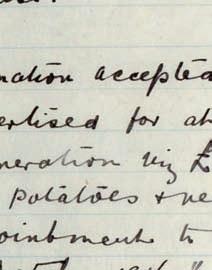 nation accepted
ertised for at
neration viz £
potatoes + ve
ointment to